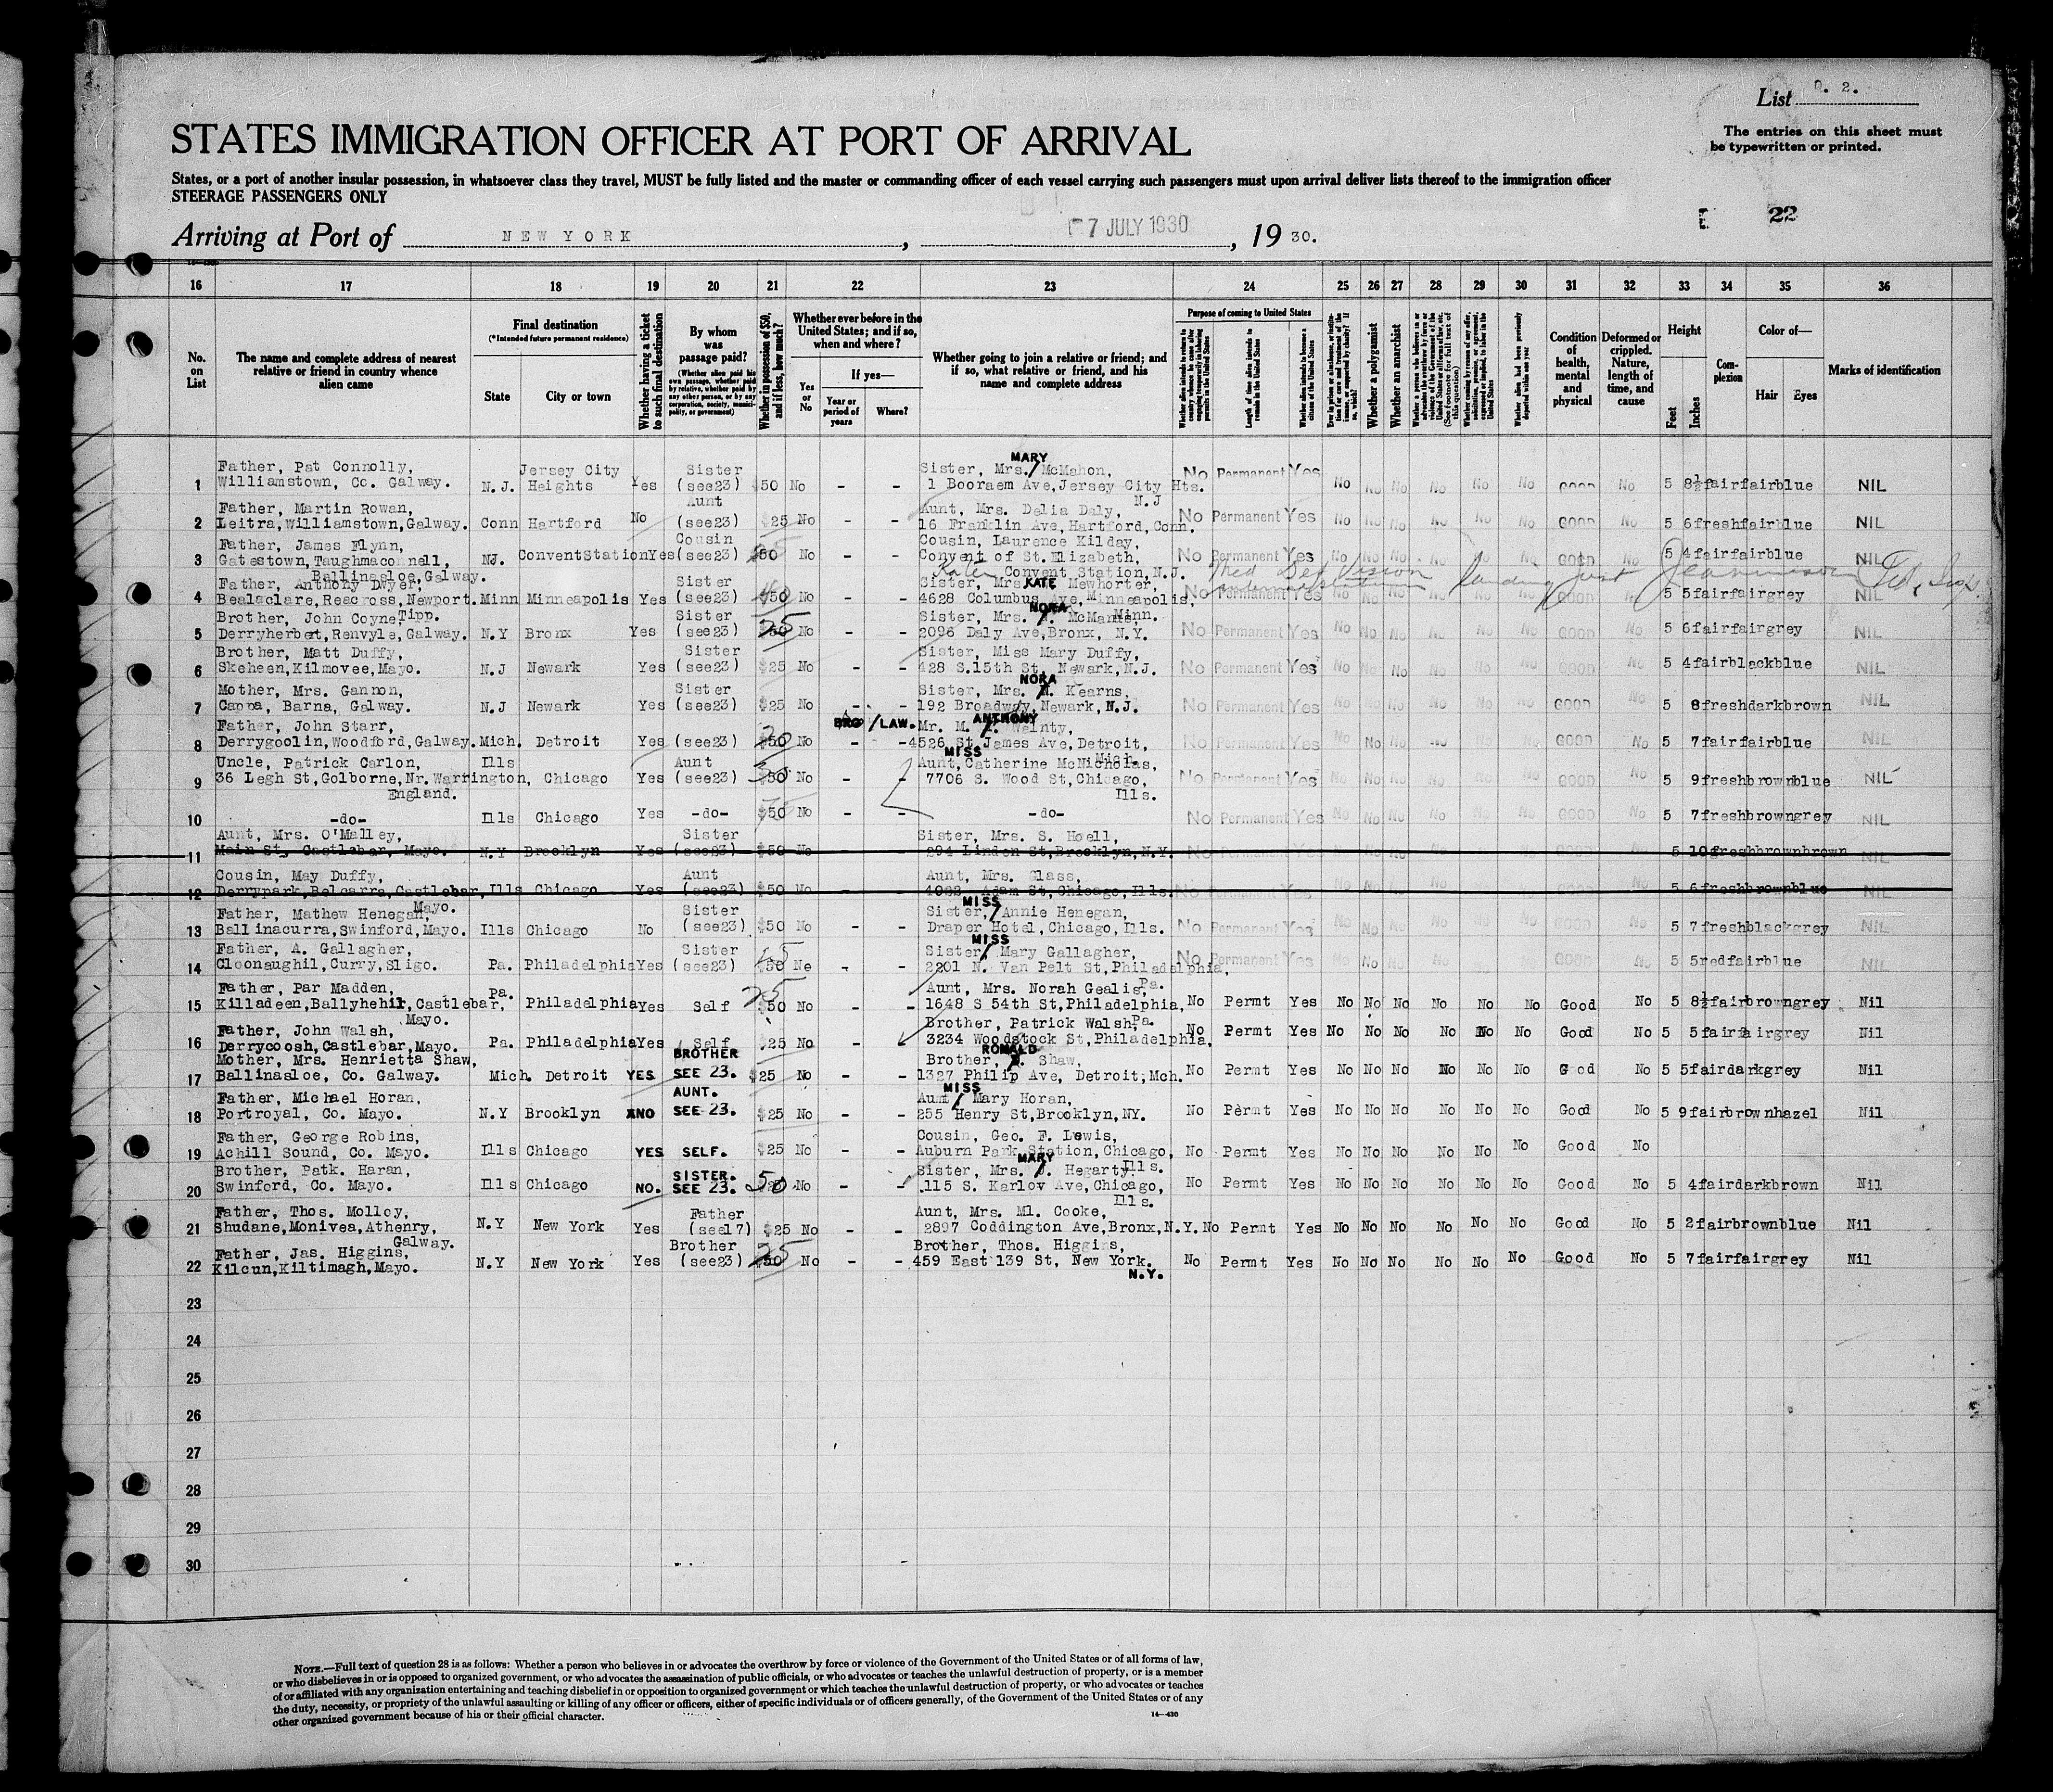 List Q. 2.
STATES IMMIGRATION OFFICER AT PORT OF ARRIVAL
The entries on this sheet must
be typewritten or printed.
States, or a port of another insular possession, in whatsoever class they travel, MUST be fully listed and the master or commanding officer of each vessel carrying such passengers must upon arrival deliver lists thereof to the immigration officer
STEERAGE PASSENGERS ONLY
22
Arriving at Port of NEW YORK, 7 JULY 1930, 19 30.
16 17 18 19 20 21 22 23 24 25 26 27 28 29 30 31 32 33 34 35 36
No. on List
The name and complete address of nearest relative or friend in country whence alien came
Final destination
(*Intended future permanent residence)
State
City or town
Whether having a ticket to such final destination
By whom was passage paid?
(Whether alien paid his own passage, whether paid by relative, whether paid by any other person, or by any corporation, society, municipality, or government)
Whether in possession of $50, and if less, how much?
Whether ever before in the United States; and if so, when and where?
Yes or No
If yes—
Year or period of years
Where?
Whether going to join a relative or friend; and if so, what relative or friend, and his name and complete address
Purpose of coming to United States
Whether alien intends to return to country whence he came after engaging temporarily in laboring pursuits in the United States
Length of time alien intends to remain in the United States
Whether alien intends to become a citizen of the United States
Ever in prison or almshouse, or institution for care and treatment of the insane, or supported by charity? If so, which?
Whether a polygamist
Whether an anarchist
(See footnote for full text of this question)
Whether coming by reason of any offer, solicitation, promise, or agreement, expressed or implied, to labor in the United States
Whether alien had been previously deported within one year
Condition of health, mental and physical
Deformed or crippled. Nature, length of time, and cause
Height
Feet
Inches
Complexion
Color of—
Hair
Eyes
Marks of identification
MARY
Father, Pat Connolly, Jersey City Sister Sister, Mrs. McMahon, No Permanent Yes
1 Williamstown, Co. Galway. N.J. Heights Yes (see23) $50 No - - 1 Booraem Ave,Jersey City Hts. No No No No No No GOOD No 5 8½ fair fair blue NIL
N.J
Father, Martin Rowan, Aunt Aunt, Mrs. Delia Daly,
2 Leitra,Williamstown,Galway. Conn Hartford No (see23) $25 No - - 16 Franklin Ave,Hartford,Conn. No Permanent Yes No No No No No No GOOD No 5 6 fresh fair blue NIL
Father, James Flynn, Cousin Cousin, Laurence Kilday,
3 Gatestown,Taughmaconnell, NJ. ConventStation Yes (see23) $50 No - - Convent of St.Elizabeth, No Permanent Yes No No No No No No GOOD No 5 4 fair fair blue NIL
Ballinasloe,Galway. Convent Station,N.J.
Father, Anthony Dwyer, Sister Sister, Mrs KATE Mewhorter,
4 Bealaclare,Reacross,Newport. Minn Minneapolis Yes (see23) $50 No - - 4628 Columbus Ave,Minneapolis, No Permanent Yes GOOD No 5 5 fair fair grey NIL
Tipp. Minn.
Brother, John Coyne Sister Sister, Mrs. NORA McManus,
5 Derryherbert,Renvyle,Galway. N.Y Bronx Yes (see23) 25 No - - 2096 Daly Ave,Bronx, N.Y. No Permanent Yes No No No No No No GOOD No 5 6 fair fair grey NIL
Brother, Matt Duffy, Sister Sister, Miss Mary Duffy,
6 Skeheen,Kilmovee,Mayo. N.J Newark Yes (see23) $25 No - - 428 S.15th St, Newark,N.J. No Permanent Yes No No No No No No GOOD No 5 4 fair black blue NIL
NORA
Mother, Mrs. Gannon, Sister Sister, Mrs. N. Kearns,
7 Cappa, Barna, Galway. N.J Newark Yes (see23) $25 No - - 192 Broadway,Newark,N.J. No Permanent Yes No No No No No No GOOD No 5 8 fresh dark brown NIL
Father, John Starr, BRO / LAW. Mr. M. ANTHONY
8 Derrygoolin,Woodford,Galway. Mich. Detroit Yes (see23) $50 No - - 4526 St James Ave,Detroit, No Permanent Yes No No No No No No GOOD No 5 7 fair fair blue NIL
MISS Mich.
Uncle, Patrick Carlon, Ills Aunt Aunt,Catherine McNicholas,
9 36 Legh St,Golborne,Nr.Warrington, Chicago Yes (see23) $50 No - - 7706 S. Wood St,Chicago, No Permanent Yes No No No No No No GOOD No 5 9 fresh brown blue NIL
England. Ills.
10 -do- Ills Chicago Yes -do- $50 No - - -do- No Permanent Yes No No No No No No GOOD No 5 7 fresh brown grey NIL
Aunt, Mrs. O'Malley, Sister Sister, Mrs. S. Hoell,
11 Main St, Castlebar, Mayo. N.Y Brooklyn Yes (see23) $50 No 294 Linden St,Brooklyn,N.Y. 5 10 fresh brown brown NIL
Cousin, May Duffy, Aunt Aunt, Mrs. Glass,
12 Derrypark,Belcarra,Castlebar, Ills Chicago Yes (see23) $50 No Adam St,Chicago,Ills. 5 6 fresh brown blue NIL
Mayo. MISS
Father, Mathew Henegan, Sister Sister, Annie Henegan,
13 Ballinacurra,Swinford,Mayo. Ills Chicago No (see23) $50 No - - Draper Hotel,Chicago,Ills. No Permanent Yes No No No No No No GOOD No 5 7 fresh black grey NIL
MISS
Father, A. Gallagher, Sister Sister, Mary Gallagher,
14 Cloonaughil,Curry,Sligo. Pa. Philadelphia Yes (see23) $50 No - - 2201 N. Van Pelt St,Philadelphia, No Permanent Yes No No No No No No GOOD No 5 5 red fair blue NIL
Pa.
Father, Par Madden, Pa. Aunt, Mrs. Norah Gealis,
15 Killadeen,Ballyhehir,Castlebar, Philadelphia Yes Self 25 $50 No - - 1648 S 54th St,Philadelphia, No Permt Yes No No No No No No Good No 5 8½ fair brown grey Nil
Mayo. Pa.
Father, John Walsh, Brother, Patrick Walsh,
16 Derrycoosh,Castlebar,Mayo. Pa. Philadelphia Yes Self $25 No - 3234 Woodstock St,Philadelphia, No Permt Yes No No No No No No Good No 5 5 fair fair grey Nil
Mother, Mrs. Henrietta Shaw, BROTHER Brother, RONALD Shaw,
17 Ballinasloe, Co. Galway. Mich. Detroit YES SEE 23. $25 No - - 1327 Philip Ave, Detroit,Mch. No Permt Yes No No No No No No Good No 5 5 fair dark grey Nil
MISS
Father, Michael Horan, AUNT. Aunt Mary Horan,
18 Portroyal, Co. Mayo. N.Y Brooklyn NO SEE 23. $25 No - - 255 Henry St,Brooklyn,NY. No Permt Yes No No No No No No Good No 5 9 fair brown hazel Nil
Father, George Robins, Cousin, Geo. F. Lewis,
19 Achill Sound, Co. Mayo. Ills Chicago YES SELF. $25 No - - Auburn Park Station,Chicago, No Permt Yes No No No No No No Good No
MARY Ills.
Brother, Patk. Haran, SISTER. Sister, Mrs. J. Hegarty
20 Swinford, Co. Mayo. Ills Chicago NO. SEE 23. 50 No - - 115 S. Karlov Ave,Chicago, No Permt Yes No No No No No No Good No 5 4 fair dark brown Nil
Ills.
Father, Thos. Molloy, Father Aunt, Mrs. Ml. Cooke,
21 Shudane,Monivea,Athenry, N.Y New York Yes (see17) $25 No - - 2897 Coddington Ave,Bronx,N.Y. No Permt Yes No No No No No No Good No 5 2 fair brown blue Nil
Galway.
Father, Jas. Higgins, Brother Brother, Thos. Higgins,
22 Kilcun,Kiltimagh,Mayo. N.Y New York Yes (see23) 25 No - - 459 East 139 St, New York. No Permt Yes No No No No No No Good No 5 7 fair fair grey Nil
N.Y.
23
24
25
26
27
28
29
30
NOTE.—Full text of question 28 is as follows: Whether a person who believes in or advocates the overthrow by force or violence of the Government of the United States or of all forms of law,
or who disbelieves in or is opposed to organized government, or who advocates the assassination of public officials, or who advocates or teaches the unlawful destruction of property, or is a member
of or affiliated with any organization entertaining and teaching disbelief in or opposition to organized government or which teaches the unlawful destruction of property, or who advocates or teaches
the duty, necessity, or propriety of the unlawful assaulting or killing of any officer or officers, either of specific individuals or of officers generally, of the Government of the United States or of any
other organized government because of his or their official character.
14—430